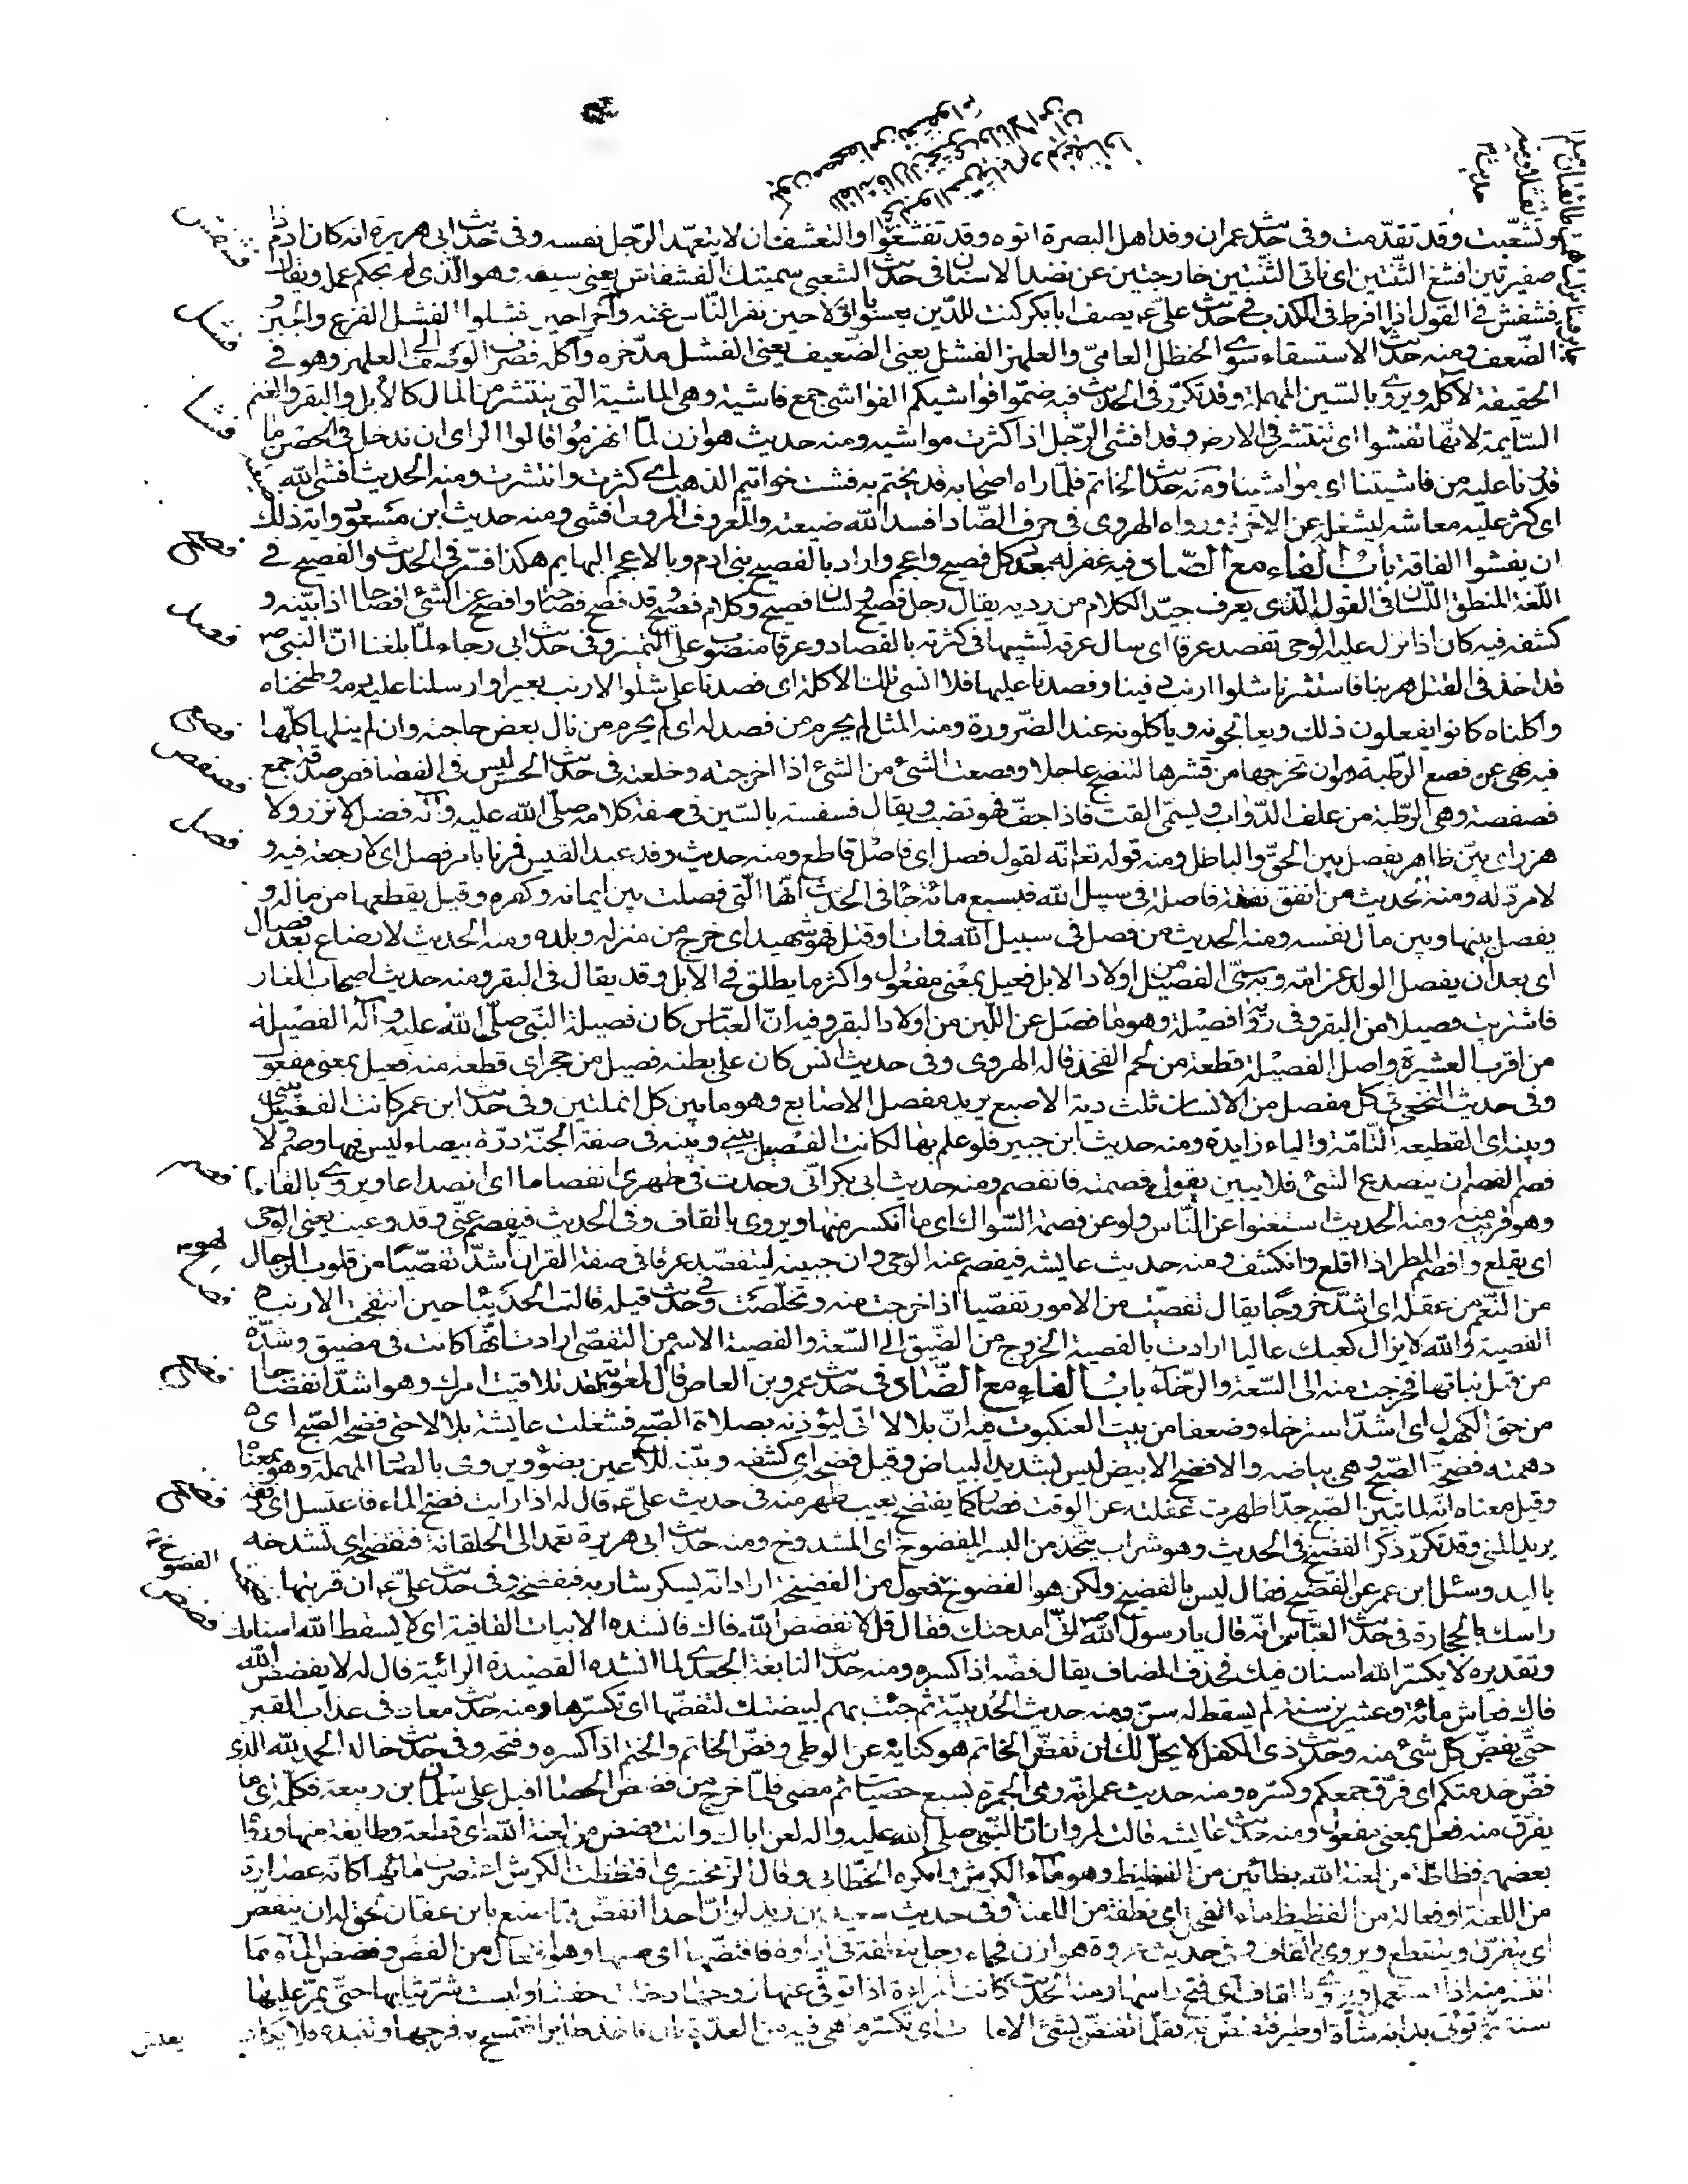 وتشعّبت وقد تقدّمت وفى حديث عمران وفد اهل البصرة اتوه وقد تفشغوا والتفشغ ان لا يتعهّد الرّجل نفسه وفى حديث ابى هريرة انه كان ادم ذا
ضفيرتين افشغ الثّنيّتين اى ناتى الثّنيّتين خارجتين عن نضد الاسنان فى حديث الشعبى سميتك الفشفاش يعنى سيفه وهو الّذى لم يحكم عمله ويقال
فشفش فى القول اذا افرط فى الكذب فى حديث علىّ ع يصف ابا بكر كنت للدّين يعسوبا اوّلا حين نفر النّاس عنه واخرا حين فشلوا الفشل الفزع والجبن و
الضّعف ومنه حديث الاستسقاء سوى الحنظل العامىّ والعلهز الفشل يعنى الضّعيف يعنى الفشل مدّخره واكله فصرف الوصف الى العلهز وهو فى
الحقيقة لاكله ويروى بالسّين المهملة وقد تكرّر فى الحديث فيه ضمّوا فواشيكم الفواشى جمع فاشية وهى الماشية الّتى ينتشر من المال كالابل والبقر والغنم
السّايمة لانّها تفشوا اى تنتشر فى الارض وقد افشى الرّجل اذا كثرت مواشيه ومنه حديث هوازن لمّا انهزموا قالوا الراى ان ندخل فى الحصن ما
قدرنا عليه من فاشيتنا اى مواشينا ومنه حديث الخاتم فلمّا راه اصحابه قد يختم به فشت خواتيم الذهب اى كثرت وانتشرت ومنه الحديث افشى الله ضيعته
اى كثر عليه معاشه ليشغله عن الاخرة ورواه الهروى فى حرف الضّاد افسد الله ضيعته والمعروف المروى افشى ومنه حديث ابن مسعود واية ذلك
ان يفشوا الفاقة باب الفاء مع الصّاد فيه غفر له بعدد كل فصيح واعجم واراد بالفصيح بنى ادم وبالاعجم البهايم هكذا فسّر فى الحديث والفصيح فى
اللّغة المنطلق اللّسان فى القول الّذى يعرف جيّد الكلام من رديه يقال رجل فصيح ولسان فصيح وكلام فصيح وقد فصح فصاحة وافصح عن الشئ افصاحا اذا بيّنه و
كشفه فيه كان اذا نزل عليه الوحى تفصد عرقا اى سال عرقه تشبيها فى كثرته بالفصاد وعرقا منصوب على التّمييز وفى حديث ابى رجاء لمّا بلغنا انّ النبى ص
قد اخذ فى القتل هربنا فاستثرنا شلو ارنب دفينا وفصدنا عليها فلا انسى تلك الاكلة اى فصدنا على شلو الارنب بعيرا وارسلنا عليه دمه وطبخناه
واكلناه كانوا يفعلون ذلك ويعالجونه وياكلونه عند الضّرورة ومنه المثل لم يحرم من فصد له اى لم يحرم من نال بعض حاجته وان لم ينلها كلّها
فيه نهى عن فصع الرّطبة هو ان تخرجها من قشرها لتنضج عاجلا وفصعت الشئ من الشئ اذا اخرجته وخلعته فى حديث الحسن ليس فى الفصافص صدقة جمع
فصفصة وهى الرّطبة من علف الدّوابّ ويسمّى القتّ فاذا جفّ فهو قضب ويقال فسفسة بالسّين فى صفة كلامه صلّى الله عليه واله فصل لا نزر ولا
هزر اى بيّن ظاهر يفصل بين الحقّ والباطل ومنه قوله تع انّه لقول فصل اى فاصل قاطع ومنه حديث وفد عبد القيس فمرنا بامر فصل اى لا رجعة فيه و
لا مردّ له ومنه الحديث من انفق نفقة فاصلة فى سبيل الله فبسبع مائة جاء فى الحديث انّها الّتى فصلت بين ايمانه وكفره وقيل يقطعها من ماله و
يفصل بينها وبين مال نفسه ومنه الحديث من فصل فى سبيل الله فمات او قتل فهو شهيد اى خرج من منزله وبلده ومنه الحديث لا رضاع بعد فصال
اى بعد ان يفصل الولد عن امّه وبه سمّى الفصيل من اولاد الابل فعيل بمعنى مفعول واكثر ما يطلق فى الابل وقد يقال فى البقر ومنه حديث اصحاب الغار
فاشتريت فصيلا من البقر وفى رواية فصيلة وهو ما فصل عن اللّبن من اولاد البقر وفيه انّ العبّاس كان فصيلة النّبى صلّى الله عليه واله الفصيلة
من اقرب العشيرة واصل الفصيلة قطعة من لحم الفخذ قاله الهروى وفى حديث انس كان على بطنه فصيل من حجر اى قطعة منه فعيل بمعنى مفعول
وفى حديث النخعى فى كل مفصل من الانسان ثلث دية الاصبع يريد مفصل الاصابع وهو ما بين كل انملتين وفى حديث ابن عمر كانت الفيصل بينى
وبينه اى القطيعة التّامّة والياء زايدة ومنه حديث ابن جبير فلو علم بها لكانت الفيصل بينى وبينه فى صفة الجنّة درّة بيضاء ليس فيها وصم ولا
فصم الفصم ان ينصدع الشئ فلا يبين يقول فصمته فانفصم ومنه حديث ابى بكر انّى وجدت فى ظهرى انفصاما اى انصداعا ويروى بالقاف
وهو قريب منه ومنه الحديث استغنوا عن النّاس ولو عن فصمة السّواك اى ما انكسر منها ويروى بالقاف وفى الحديث فيفصم عنّى وقد وعيت يعنى الوحى
اى يقلع وافصم المطر اذا اقلع وانكشف ومنه حديث عايشه فيفصم عنه الوحى وان جبينه ليتفصّد عرقا فى صفة القران اشدّ تفصّيا من قلوب الرجال
من النّعم من عقله اى اشدّ خروجا يقال تفصّيت من الامور تفصّيا اذا خرجت منه وتخلّصت وفى حديث قيله قالت الحديباء حين انتفجت الارنب
الفصية والله لا يزال كعبك عاليا ارادت بالفصية الخروج من الضّيق الى السّعة والفصية الاسم من التفصّى ارادت انّها كانت فى مضيق وشدّة
من قبل بناتها فخرجت منه الى السّعة والرّخاء باب الفاء مع الضّاد فى حديث عمرو بن العاص قال لمعوية لقد تلافيت امرك وهو اشدّ انفضاجا
من حق الكهول اى اشدّ استرخاء وضعفا من بيت العنكبوت فيه انّ بلالا اتى ليؤذنه بصلاة الصّبح فشغلت عايشة بلالا حتى فضحه الصّبح اى
دهمته فضحة الصّبح وهى بياضه والافضح الابيض ليس بشديد البياض وقيل فضحه اى كشفه وبيّنه للاعين بضوئه ويروى بالصّاد المهملة وهو بمعناه
وقيل معناه انّه لما تبيّن الصّبح جدّا ظهرت غفلته عن الوقت فصار كما يفتضح بعيب ظهر منه فى حديث علىّ ع قال له اذا رايت فضخ الماء فاغتسل اى دفقه
يريد المنى وقد تكرّر ذكر الفضيخ فى الحديث وهو شراب يتّخذ من البسر المفضوخ اى المشدوخ ومنه حديث ابى هريرة نعمد الى الحلقانة فنفتضخه اى نشدخه
باليد وسئل ابن عمر عن الفضيخ فقال ليس بالفضيخ ولكن هو الفضوخ فعول من الفضيخة اراد انّه يسكر شاربه فيفضخه وفى حديث علىّ ع ان قربتها فضخت
راسك بالحجارة فى حديث العبّاس انّه قال يا رسول الله ص انّى امدحتك فقال قل لا يفضض الله فاك فانشده الابيات القافية اى لا يسقط الله اسنانك
وتقديره لا يكسّر الله اسنان فيك فحذف المضاف يقال فضّه اذا كسره ومنه حديث النابغة الجعدى لما انشده القصيدة الرائية قال له لا يفضض الله
فاك فعاش مائة وعشرين سنة لم يسقط له سنّ ومنه حديث الحديبيّة ثم جئت بهم لبيضتك لتفضّها اى تكسّرها ومنه حديث معاذ فى عذاب القبر
حتّى يفضّ كل شئ منه وحديث ذى الكفل لا يحلّ لك ان تفضّ الخاتم هو كناية عن الوطى وفضّ الخاتم والختم اذا كسره وفتحه وفى حديث خالد الحمد لله الّذى
فضّ خدمتكم اى فرّق جمعكم وكسّره ومنه حديث عمر انّه رمى الجمرة بسبع حصيات ثم مضى فلمّا خرج من فضض الحصا اقبل على سلمان بن ربيعة فكلّمه اى ما
يفرّق منه فعل بمعنى مفعول ومنه حديث عايشه قالت لمروان انّ النّبى صلى الله عليه واله لعن اباك وانت فضض من لعنة الله اى قطعة وطايفة منها وروا
بعضهم فظاظة من لعنة الله بظائين من الفظيظ وهو ماء الكرش وانكره الخطّابى وقال الزمخشرى افتظظت الكرش اعتصرت ماءها كانّه عصارة
من اللّعنة او فعالة من الفظيظ ماء الفحل اى نطفة من اللعنة وفى حديث سعيد بن زيد لو انّ احدا انفضّ ممّا صنع بابن عفّان لحق له ان ينفضّ
اى يتفرّق ويتقطع ويروى بالقاف وفى حديث غزوة هوازن فجاء رجل بنطفة فى اداوة فافتضّها اى صبها وهو افتعال من الفضّ وفضض الماء ما
انتشر منه اذا استعمل ويروى بالقاف اى فتح راسها ومنه الحديث كانت المراءة اذا توفى عنها زوجها دخلت حفشا ولبست شرّ ثيابها حتّى يمرّ عليها
سنة ثمّ توتى بدابة شاة او طير فتفتضّ به فقلّما تفتضّ بشئ الا مات اى تكسّر ما هى فيه من العدّة بان تاخذ طايرا فتمسح به فرجها وتنبذه فلا يكاد
يعيش
فشفش
فشل
فشا
فصح
فصد
فصع
فصفص
فصل
فصم
فصا
فضج
فضح
فضخ
فضض